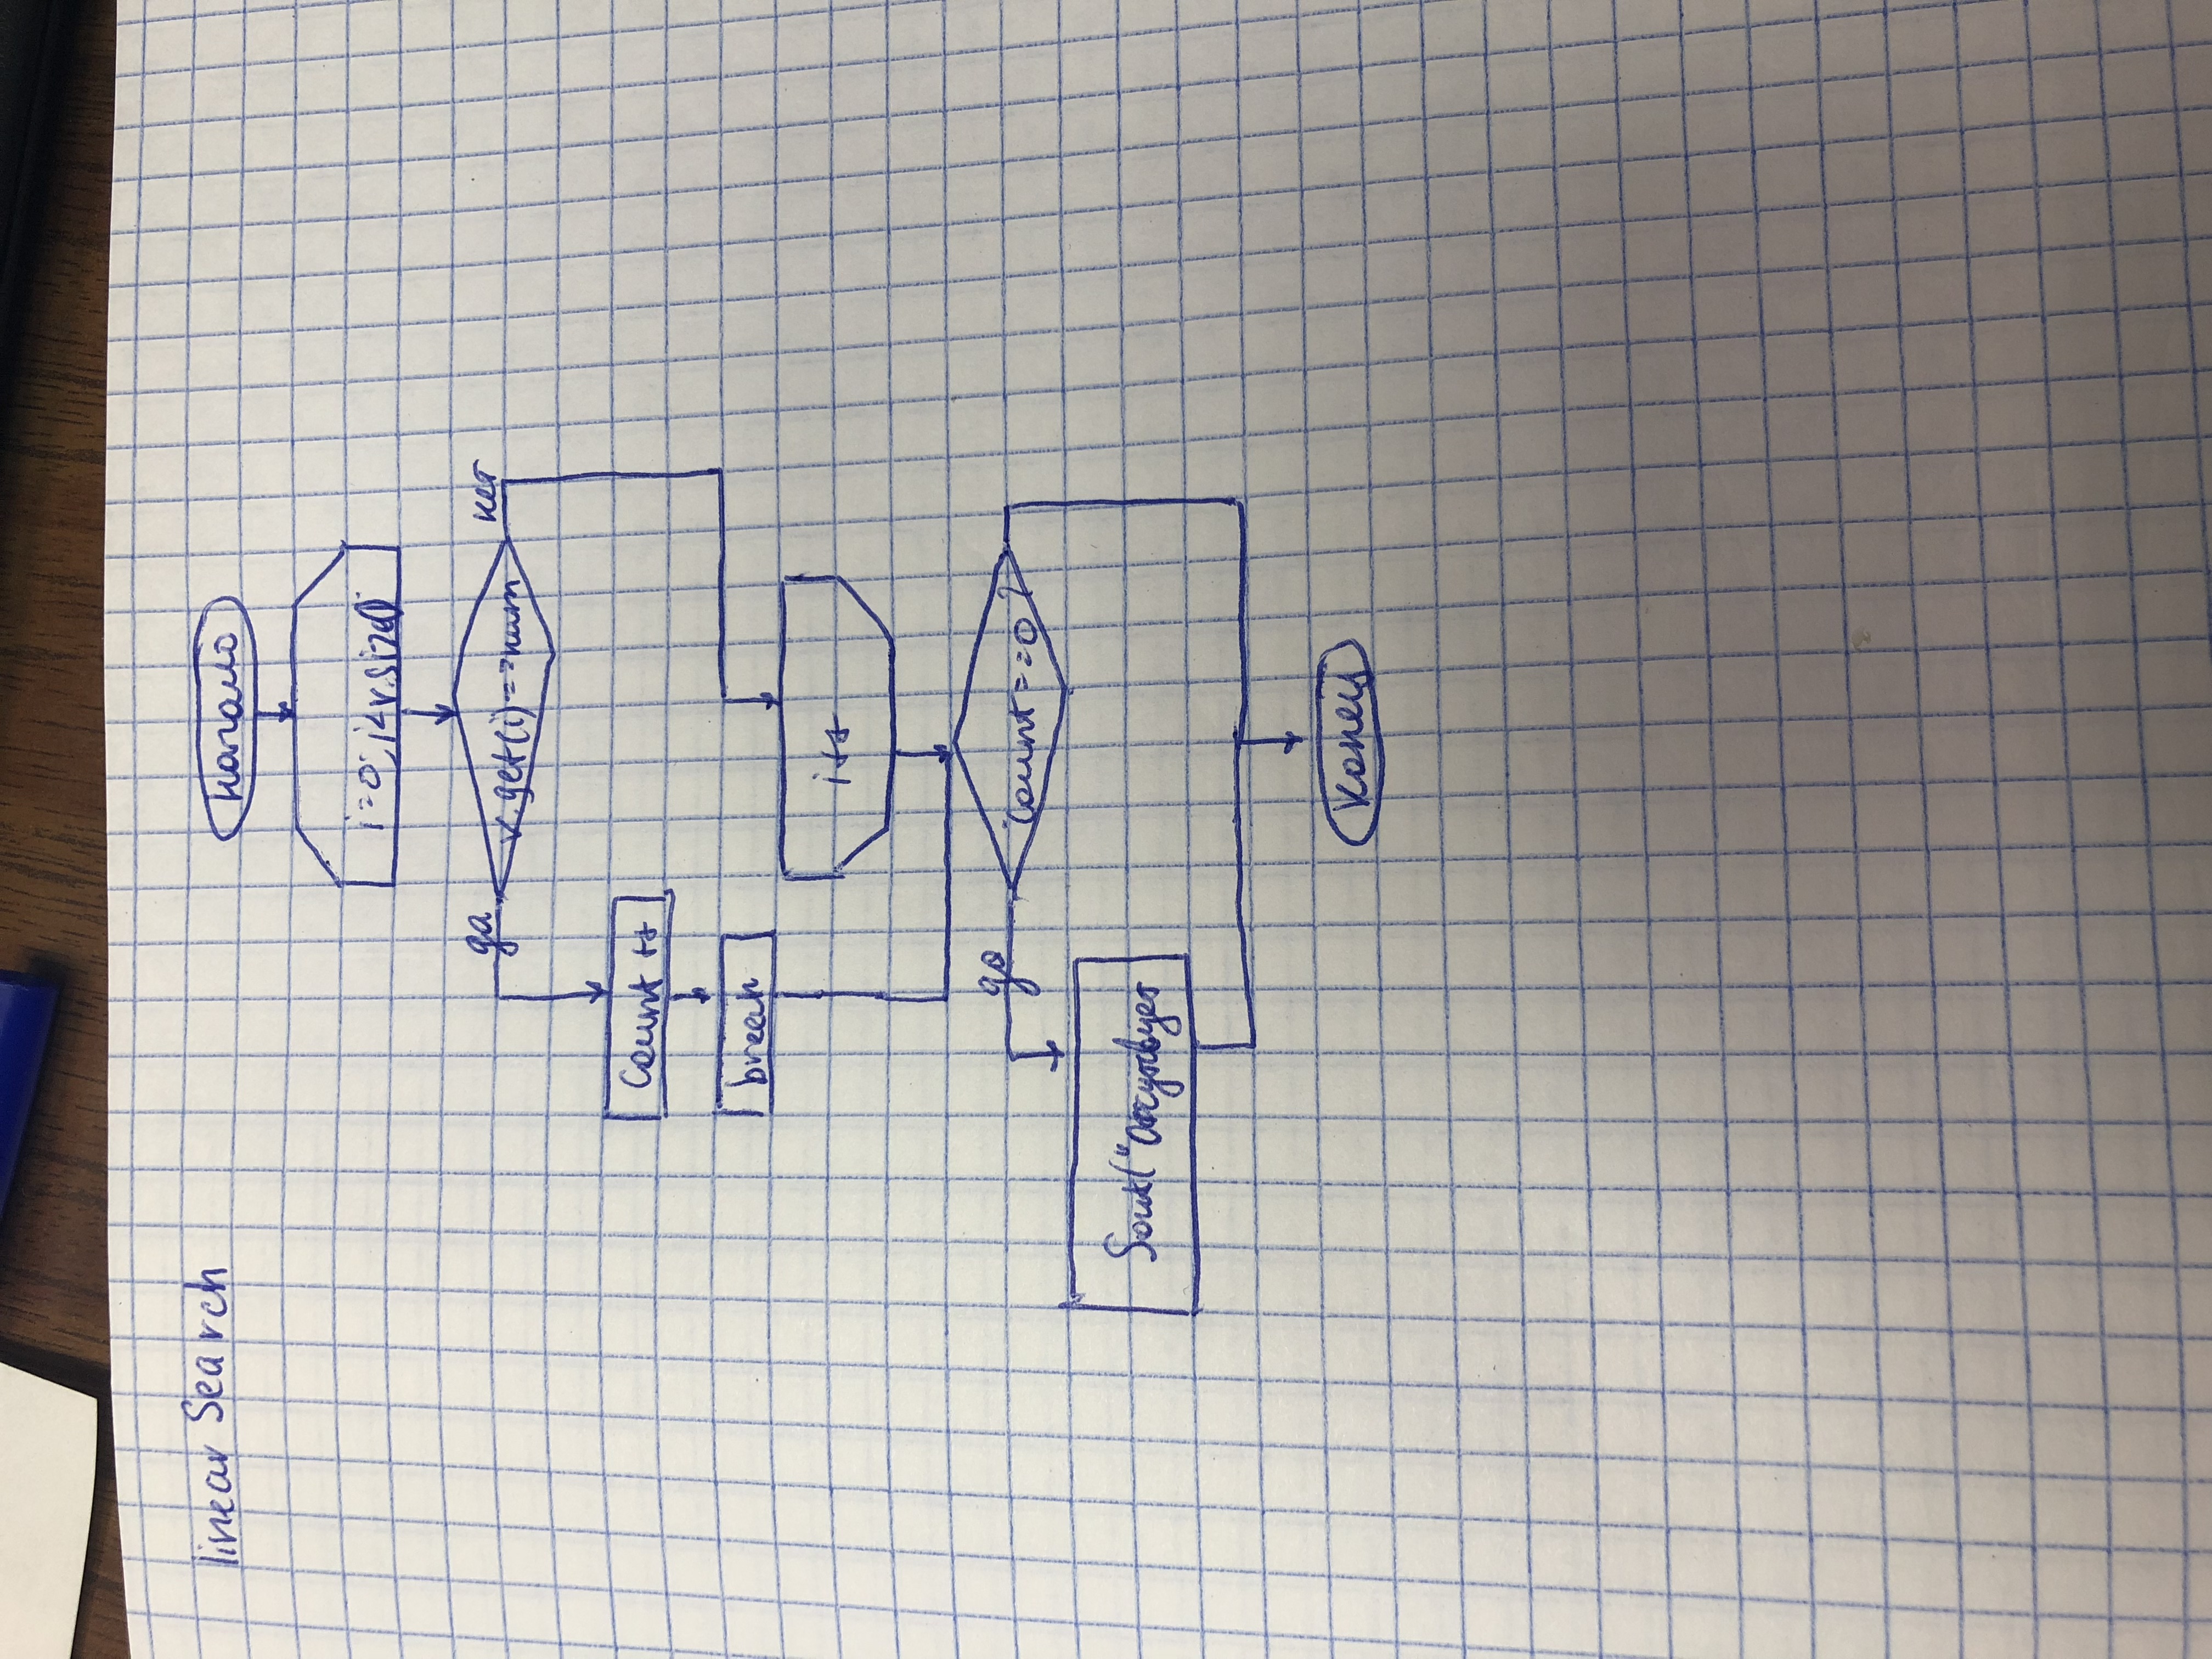 linear Search
начало
i=0; i<v.size()
да
v.get(i)==num
нет
Count ++
break
i++
да
Count==0?
Sout("Отсутствует
конец